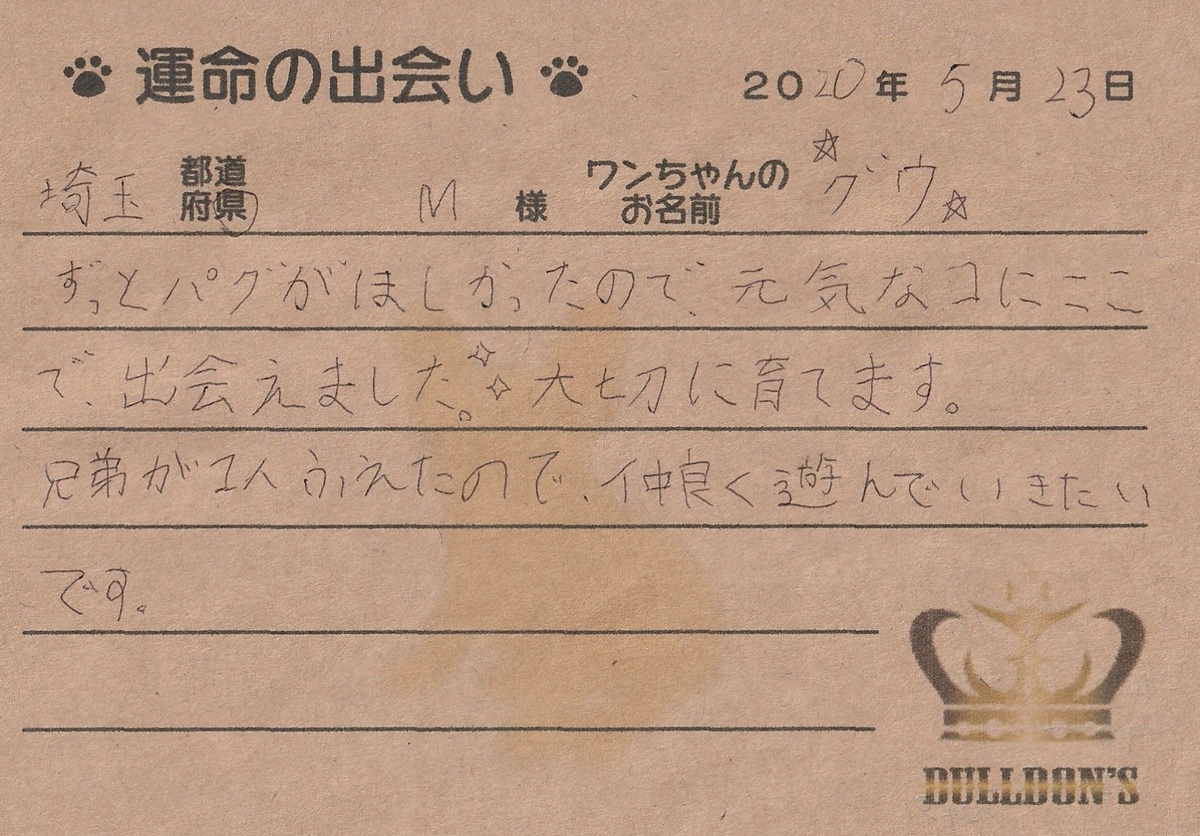 運命の出会い 2020年 5月 23日
埼玉 都道府県 M 様 ワンちゃんのお名前 ☆グウ☆
ずっとパグがほしかったので、元気なコにここ
で、出会えました。大切に育てます。
兄弟が1人ふえたので、仲良く遊んでいきたい
です。
BULLDON'S